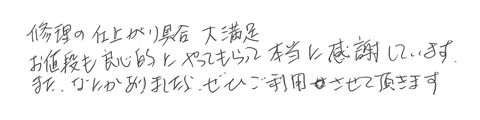 修理の仕上がり具合 大満足
お値段も良心的にやってもらって本当に感謝しています.
また、なにかありましたら、ぜひご利用させて頂きます